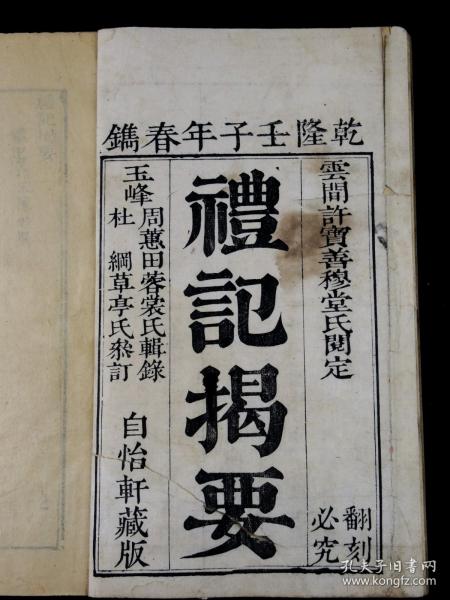 乾隆壬子年春鐫
雲間許寶善穆堂氏閱定
翻刻
必究
禮記揭要
玉峰
周蕙田蓉裳氏輯錄
杜綱草亭氏叅訂
自怡軒藏版
孔夫子旧书网
www.kongfz.com